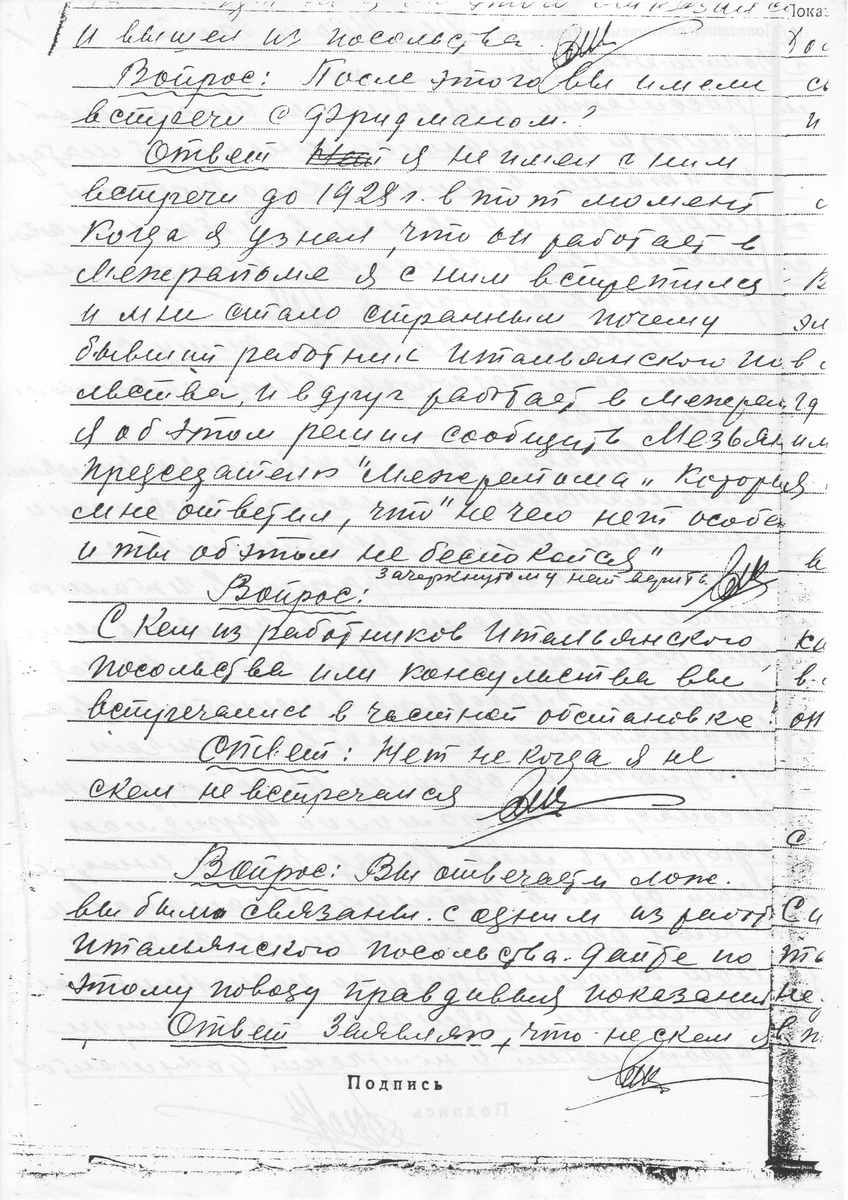 и вышел из посольства.
Вопрос: После этого вы имели
встречи с Фридманом?
Ответ Нет я не имел с ним
встречи до 1928 г. в тот момент
когда я узнал, что он работает в
Межрапоме я с ним встретился
и мни стало странным почему
бывший работник итальянского по
льства, и вдруг работает в Межрап
я об этом решил сообщить
председателю "Межрапома" которыя
мне ответил, что "не чего нет особо
и ты об этом не беспокойся"
зачеркнутому нет верить
Вопрос:
С кем из работников итальянского
посольства или консульства вы
встречались в частной обстановке
Ответ: Нет не когда я не
скем не встречался
Вопрос: Вы отвечаети лож.
вы были связаны. с одним из работ
итальянского посольства. дайте по
этому поводу правдивыя показания
Ответ Заявляю, что не скем я
Подпись